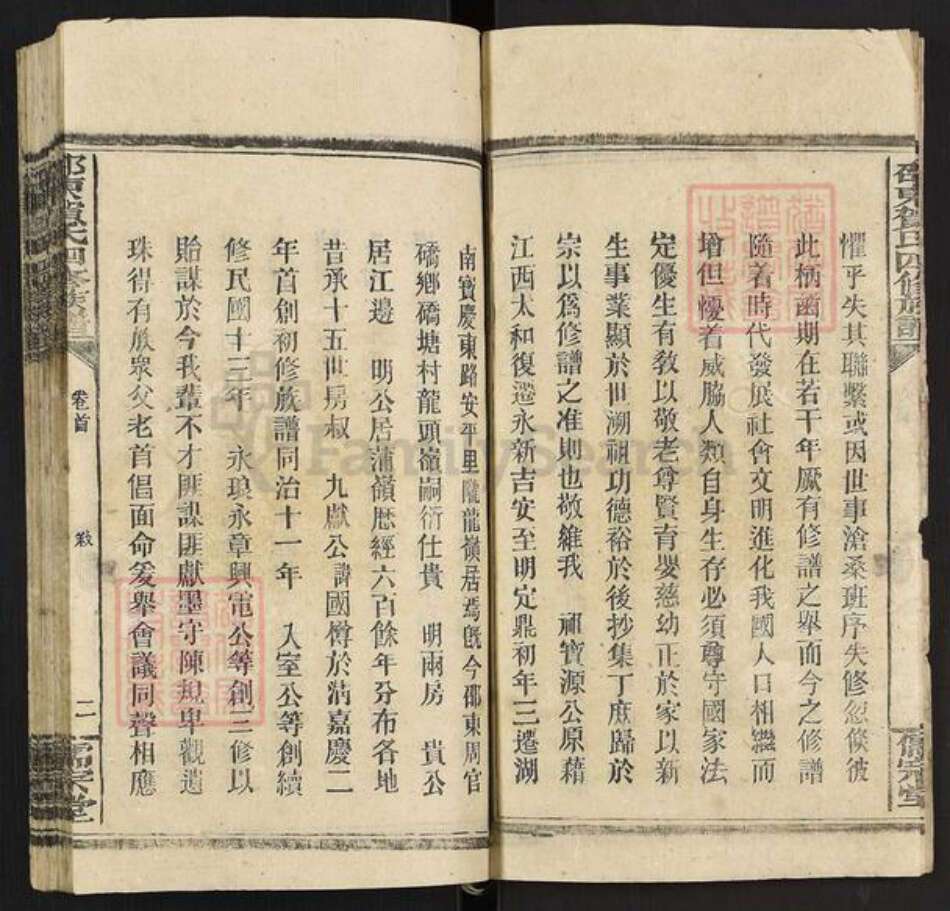 邵東賀氏四修族譜
懼乎失其聯繫或因世事滄桑班序失修忽倏彼
此柄鹵期在若干年厥有修譜之舉而今之修譜
隨着時代發展社會文明進化我國人口相繼而
增但懮着威脇人類自身生存必須尊守國家法
定優生有教以敬老尊賢育嬰慈幼正於家以新
生事業顯於世溯祖功德裕於後抄集丁庶歸於
宗以爲修譜之准則也敬維我 祖寶源公原藉
江西太和復遷永新吉安至明定鼎初年三遷湖
儒宗堂
南寶慶東路安平里隴龍嶺居焉旣今邵東周官
礄鄉礄塘村龍頭嶺嗣衍仕貴 明兩房 貴公
居江邊 明公居蒲嶺歷經六百餘年分布各地
昔承十五世房叔 九獻公諱國僔於淸嘉慶二
年首創初修族譜同治十一年 入室公等創續
修民國十三年 永琅永章興電公等創三修以
貽謀於今我輩不才匪謀匪獻墨守陳規卑觀遺
珠得有族衆父老首倡面命爰舉會議同聲相應
邵東賀氏四修族譜
卷首
二
儒宗堂
FamilySearch